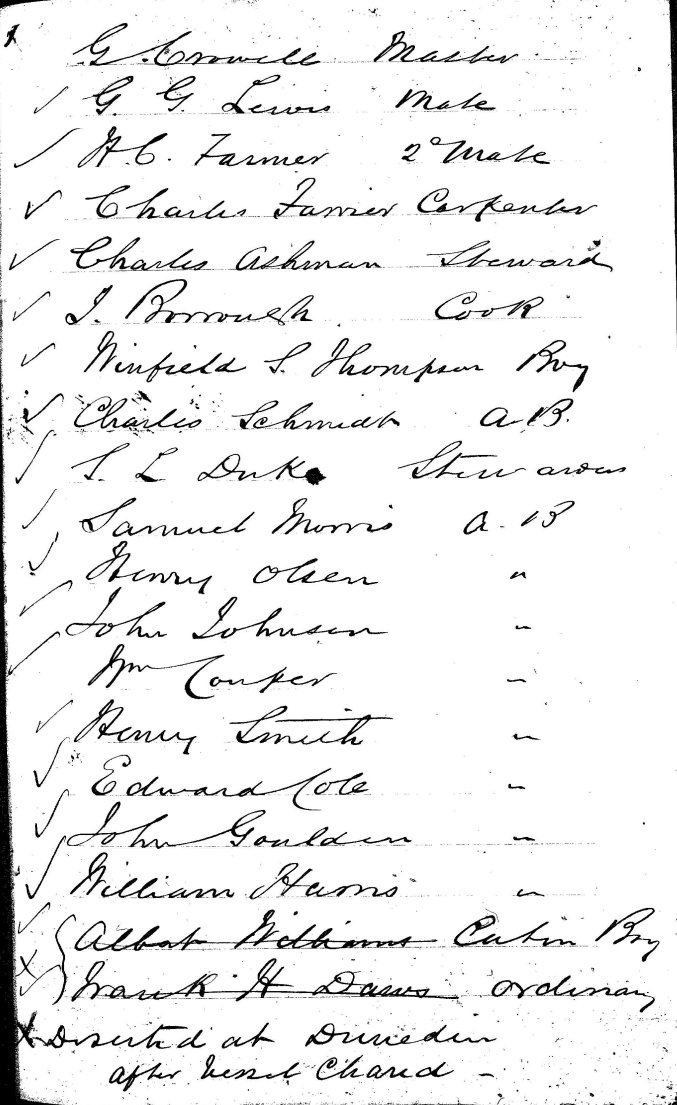 G. Crowell Master
G. G. Lewis Mate
H. C. Farmer 2º Mate
Charles Farrier Carpenter
Charles Ashman Steward
J. Borrough Cook
Winfield S. Thompson Boy
Charles Schmidt A.B.
S. L. Duke Stewardess
Samuel Morris A.B
Henry Olsen "
John Johnson "
Wm Couper "
Henry Smith "
Edward Cole "
John Goulden "
William Harris "
Albert Williams Cabin Boy
Frank H Daws ordinary
X Deserted at Dunedin
after Vessel Cleared -